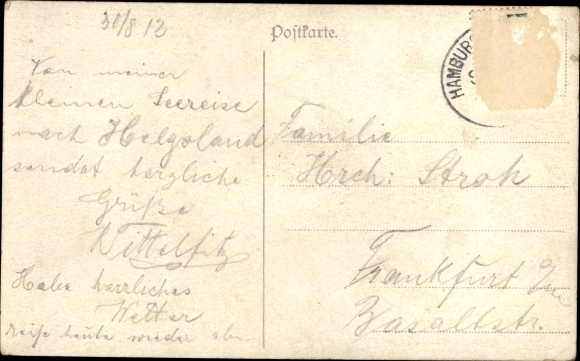 30/8 12
Postkarte.
HAMBURG
Von meiner
kleinen Seereise
nach Helgoland
sendet herzliche
Grüße
Wittelfitz
Habe herrliches
Wetter
reise heute wieder ab.
Familie
Hrch: Stroh
Frankfurt a/m
Basaltstr.